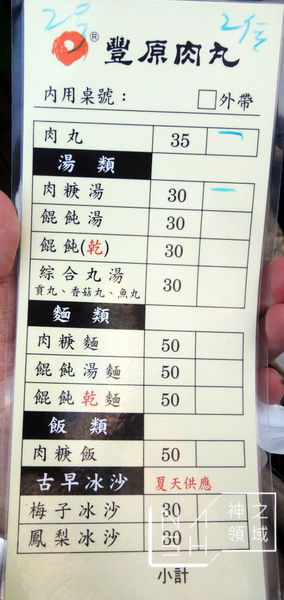 2号 2位
® 豐原肉丸
內用桌號： 外帶
肉丸 35 一
湯類
肉焿湯 30 一
餛飩湯 30
餛飩(乾) 30
綜合丸湯 30
貢丸、香菇丸、魚丸
麵類
肉焿麵 50
餛飩湯麵 50
餛飩乾麵 50
飯類
肉焿飯 50
古早冰沙 夏天供應
梅子冰沙 30
鳳梨冰沙 30
小計
神之領域